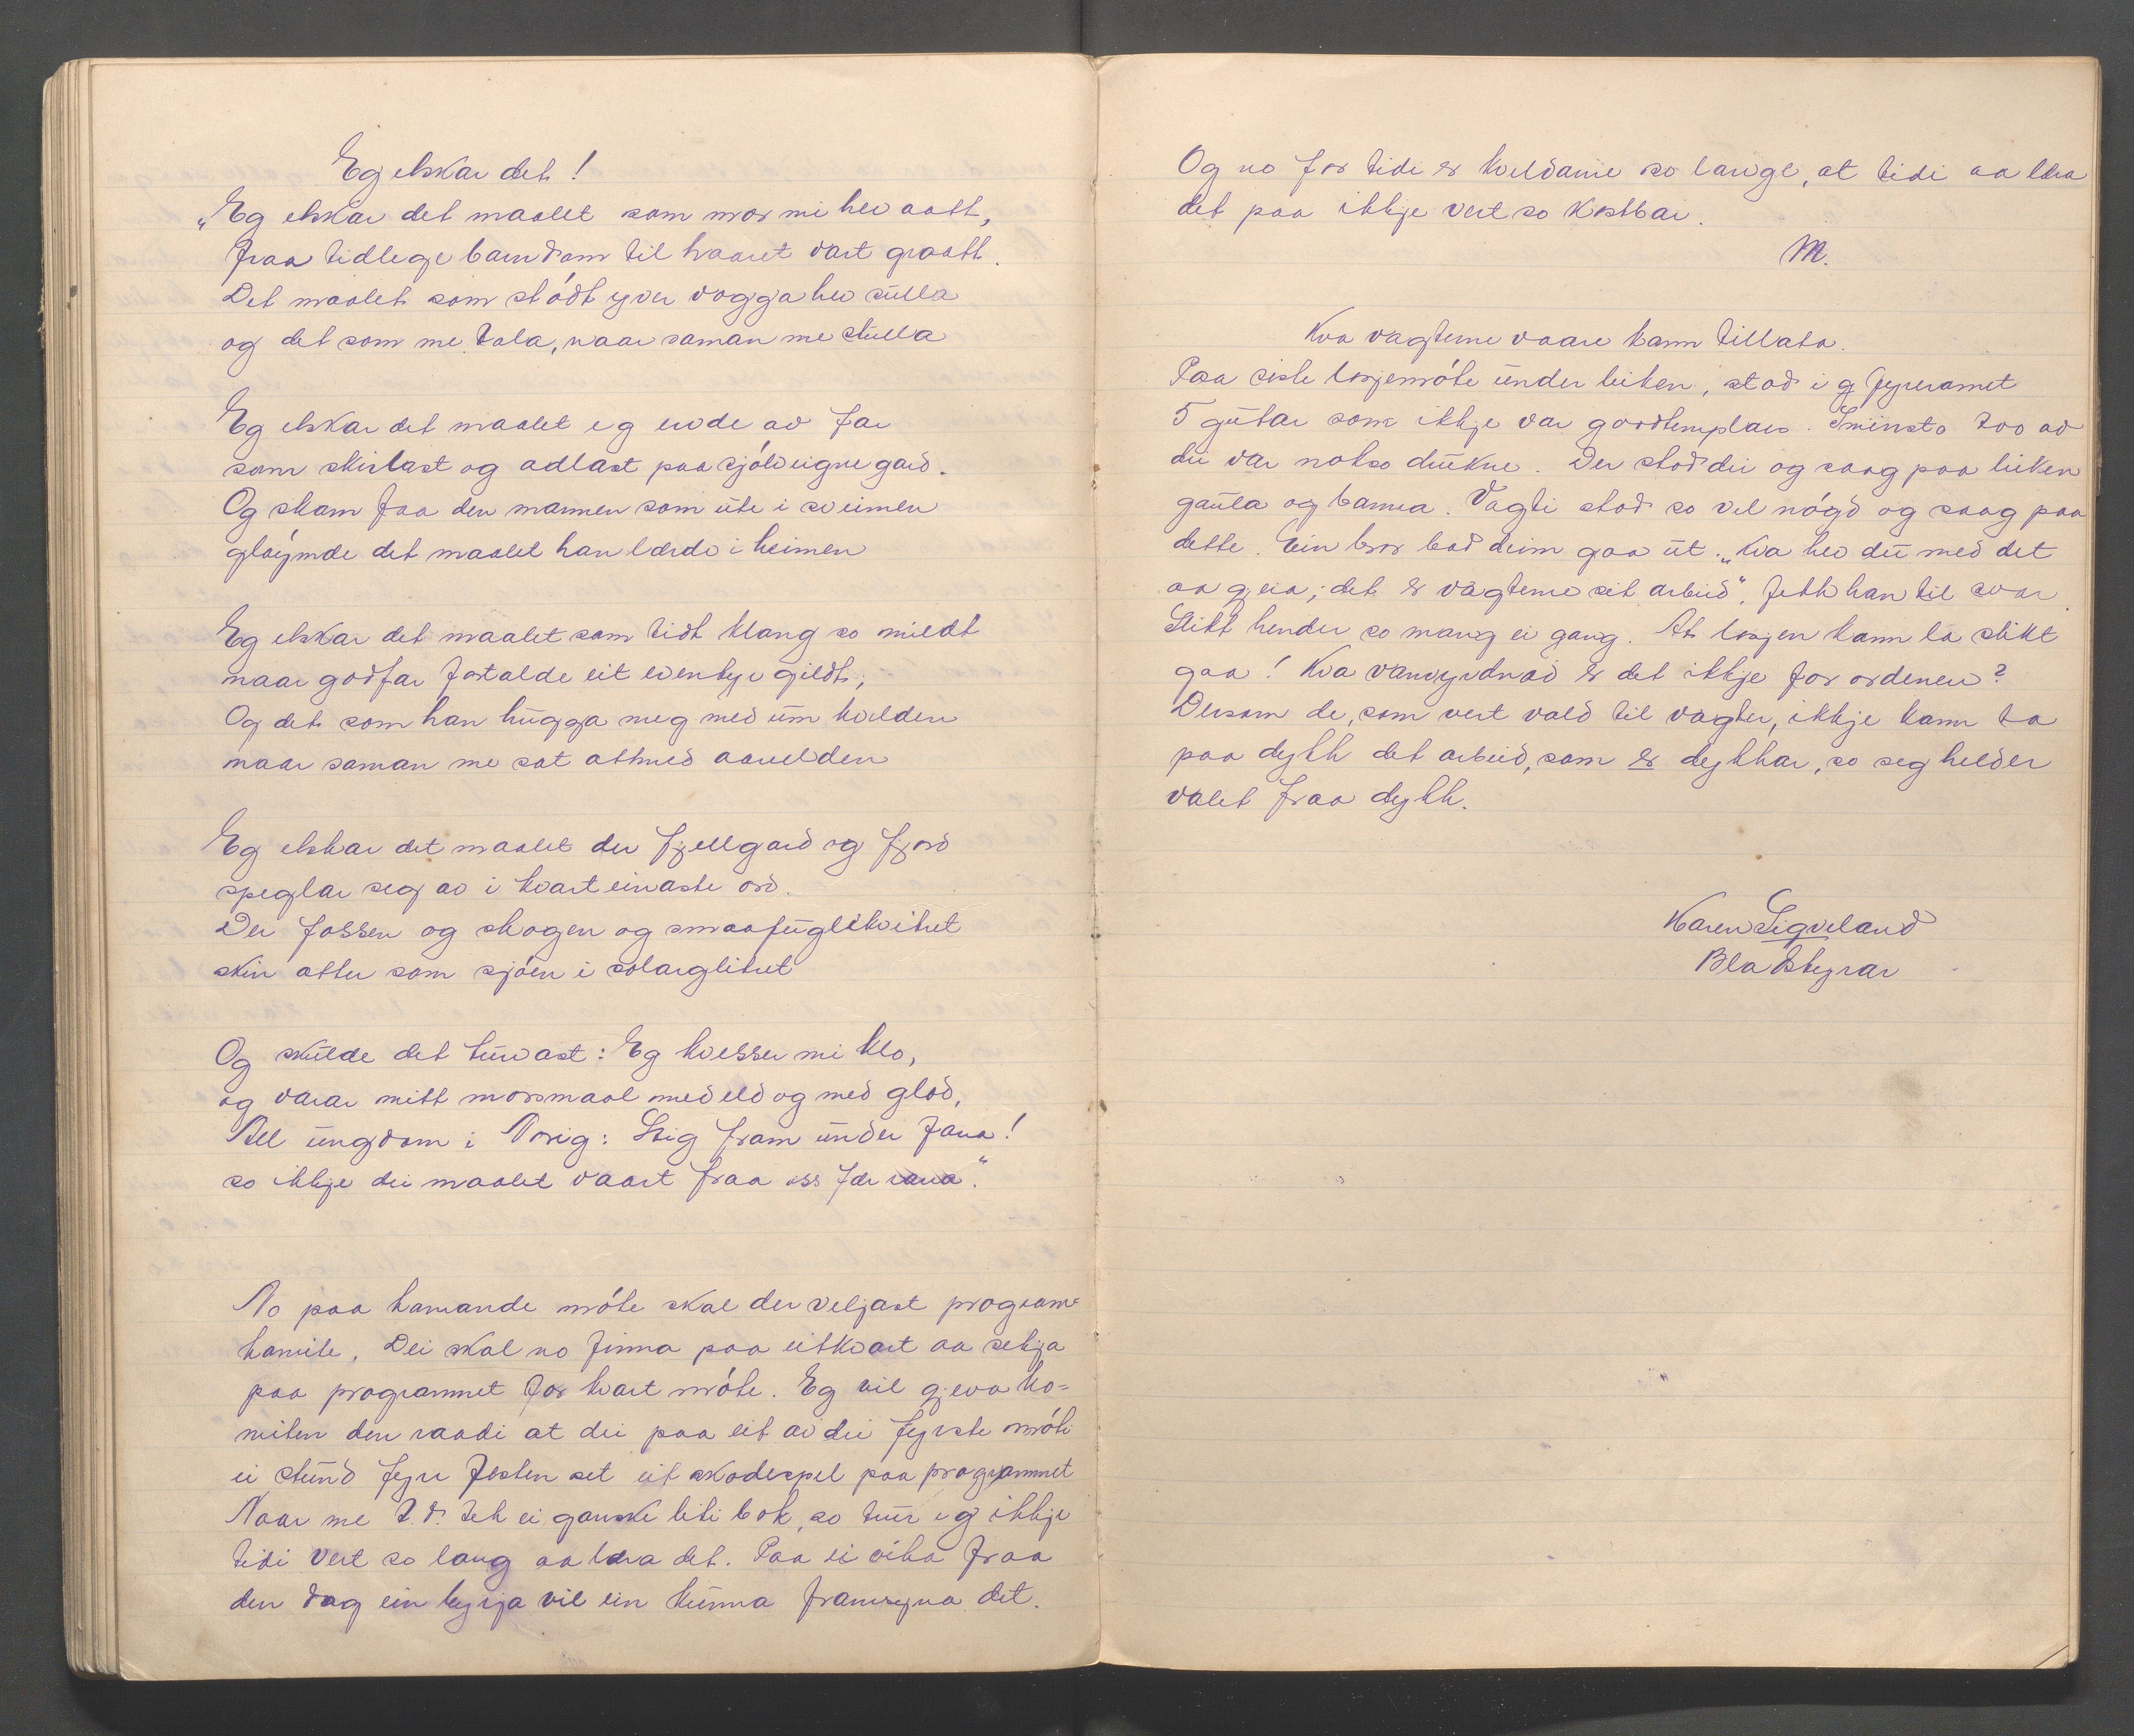 Eg elskar det!
„Eg elskar det maalet som mor mi hev aatt,
fraa tidlege barndom til haaret vart graatt.
Det maalet som stódt yver vogga hev sulla
og det som me tala, naar saman me stulla
Eg elskar det maalet eg ervde av far
som skirast og adlast paa sjólveigne gard.
Og skam faa den mannen som ute i sveimen
glóymde det maalet han lærde i heimen
Eg elskar det maalet som tidt klang so mildt
naar godfar fortalde eit eventyr gildt;
Og det som han hugga meg med um kvelden
naar saman me sat attmed aarelden
Eg elskar det maalet der fjellgard og fjord
speglar seg av i kvart einaste ord.
Der fossen og skogen og smaafuglekvitret
skin atter som sjóen i solarglitret
Og skulde det turvast: Eg kvesser mi klo,
og varar mitt morsmaal med eld og med glod,
All ungdom i Norig: Stig fram under fana!
so ikkje dei maalet vaart fraa oss fær rana".
No paa komande móte skal der veljast program=
komite. Dei skal no finna paa eitkvart aa setja
paa programmet for kvart móte. Eg vil gjeva ko=
miten den raadi at dei paa eit av dei fyrste móti
ei stund fyre festen set eit skodespel paa programmet
Naar me t.d. tek ei ganske liti bok, so trur eg ikkje
tidi vert so lang aa læra det. Paa ei vika fraa
den dag ein byrja vil ein kunna framsyna det.
Og no for tidi er kveldane so lange, at tidi aa læra
det paa ikkje vert so kostbar.
M.
Kva vagterne vaare kann tillata.
Paa siste losjemóte under leiken, stod i g fyreromet
5 gutar som ikkje var goodtemplars. Iminsto tvo av
dei var nokso drukne. Der stod dei og saag paa leiken
gaula og banna. Vagti stod so vel nógd og saag paa
dette. Ein bror bad deim gaa ut. „Kva hev du med det
aa gjera; det er vagterne sit arbeid", fekk han til svar.
Slikt hender so mang ei gang. At losjen kann la slikt
gaa! Kva vanvyrdnad er det ikkje for ordenen?
Dersom de, som vert vald til vagter, ikkje kann ta
paa dykk det arbeid, som er dykkar, so seg helder
valet fraa dykk.
Karen Sigveland
Bladstyrar